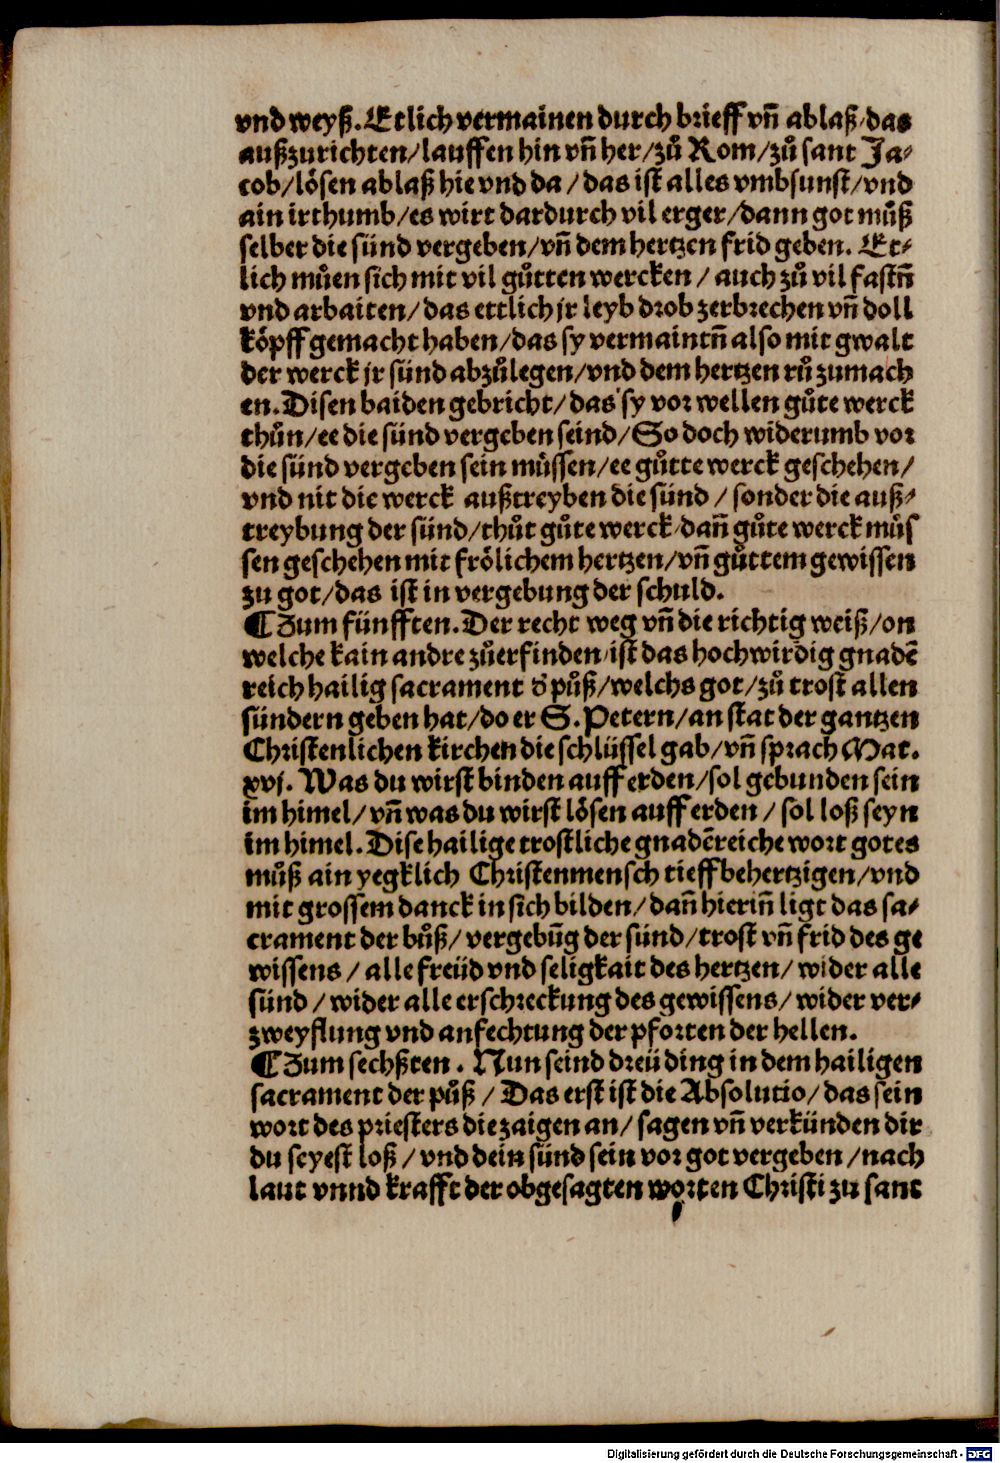 vnd weyß. Etlich vermainen durch brieff vñ ablaß/das
außzurichten/lauffen hin vñ her/zů Rom/zů sant Ja⸗
cob/lösen ablaß hie vnd da/das ist alles vmbsunst/vnd
ain irthumb/es wirt dardurch vil erger/dann got můß
selber die sünd vergeben/vñ dem hertzen frid geben. Et⸗
lich můen sich mit vil gůtten wercken/auch zů vil fastñ
vnd arbaiten/das ettlich jr leyb drob zerbrechen vñ doll
köpff gemacht haben/das sy vermaintñ also mit gwalt
der werck jr sünd abzůlegen/vnd dem hertzen rů zumach
en. Disen baiden gebricht/das sy vor wellen gůte werck
thůn/ee die sünd vergeben seind/So doch widerumb vor
die sünd vergeben sein müssen/ee gůtte werck geschehen/
vnd nit die werck außtreyben die sünd/sonder die auß⸗
treybung der sünd/thůt gůte werck/dañ gůte werck můs
sen geschehen mit frölichem hertzen/vñ gůttem gewissen
zu got/das ist in vergebung der schuld.
¶ Zum fünfften. Der recht weg vñ die richtig weiß/on
welche kain andre zůerfinden/ist das hochwirdig gnadē
reich hailig sacrament đ půß/welchs got/zů trost allen
sündern geben hat/do er S. Petern/an stat der gantzen
Christenlichen kirchen die schlüssel gab/vñ sprach Mat.
xvj. Was du wirst binden auff erden/sol gebunden sein
im himel/vñ was du wirst lösen auff erden/sol loß seyn
im himel. Dise hailige trostliche gnadēreiche wort gotes
můß ain yegklich Christenmensch tieff behertzigen/vnd
mit grossem danck in sich bilden/dañ hieriñ ligt das sa⸗
crament der bůß/vergebūg der sünd/trost vñ frid des ge
wissens/alle freüd vnd seligkait des hertzen/wider alle
sünd/wider alle erschreckung des gewissens/wider ver⸗
zweyflung vnd anfechtung der pforten der hellen.
¶ Zum sechßten. Nun seind dreü ding in dem hailigen
sacrament der půß/Das erst ist die Absolutio/das sein
wort des priesters die zaigen an/sagen vñ verkünden dir
du seyest loß/vnd dein sünd sein vor got vergeben/nach
laut vnnd krafft der obgesagten worten Christi zu sant
Digitalisierung gefördert durch die Deutsche Forschungsgemeinschaft - DFG